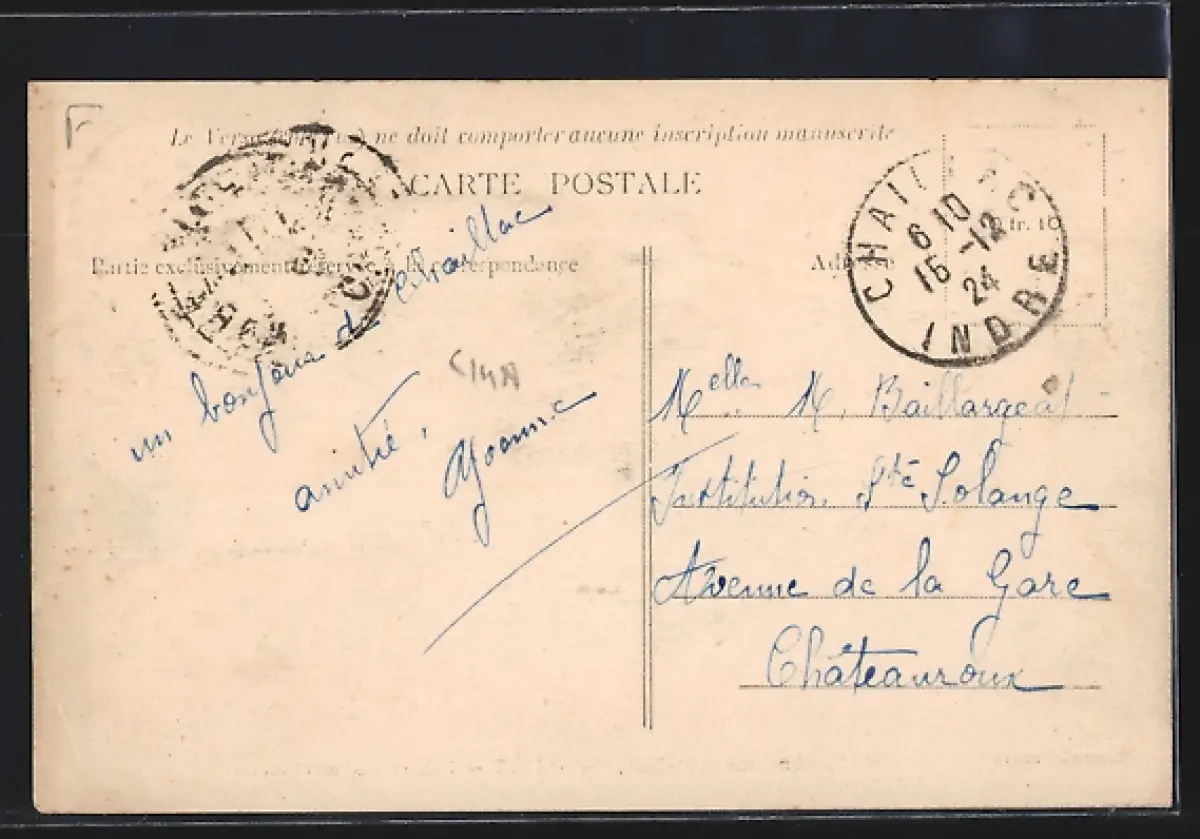 F
Le Verso ne doit comporter aucune inscription manuscrite
CARTE POSTALE
Partie exclusivement réservée à la correspondance
Adresse
CHAILLAC
6 10
16 -12
24
INDRE
fr. 10
un bonjour de Chaillac
amitié.
Yvonne
C14A
Melle M. Baillargeat
Institution Ste Solange
Avenue de la Gare
Châteauroux